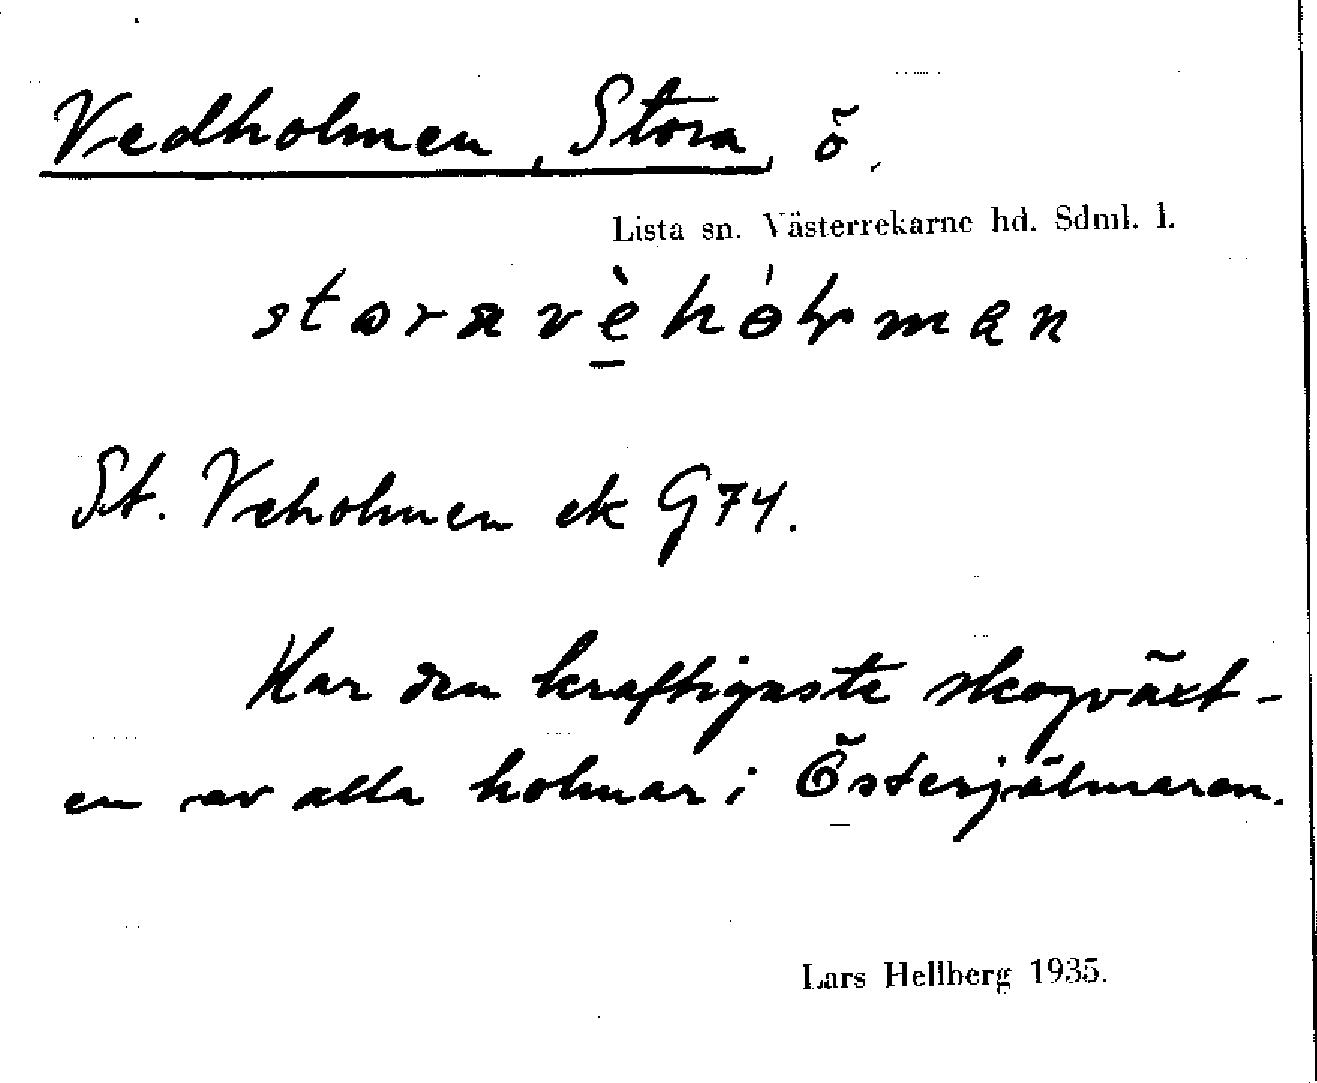 Vedholmen, Stora, ö.
Lista sn. Västerrekarne hd. Sdml. l.
St. Veholmen ek G74.
Har den kraftigaste skogväxt-
en av alla holmar i Östersjälmaren.
Lars Hellberg 1935.